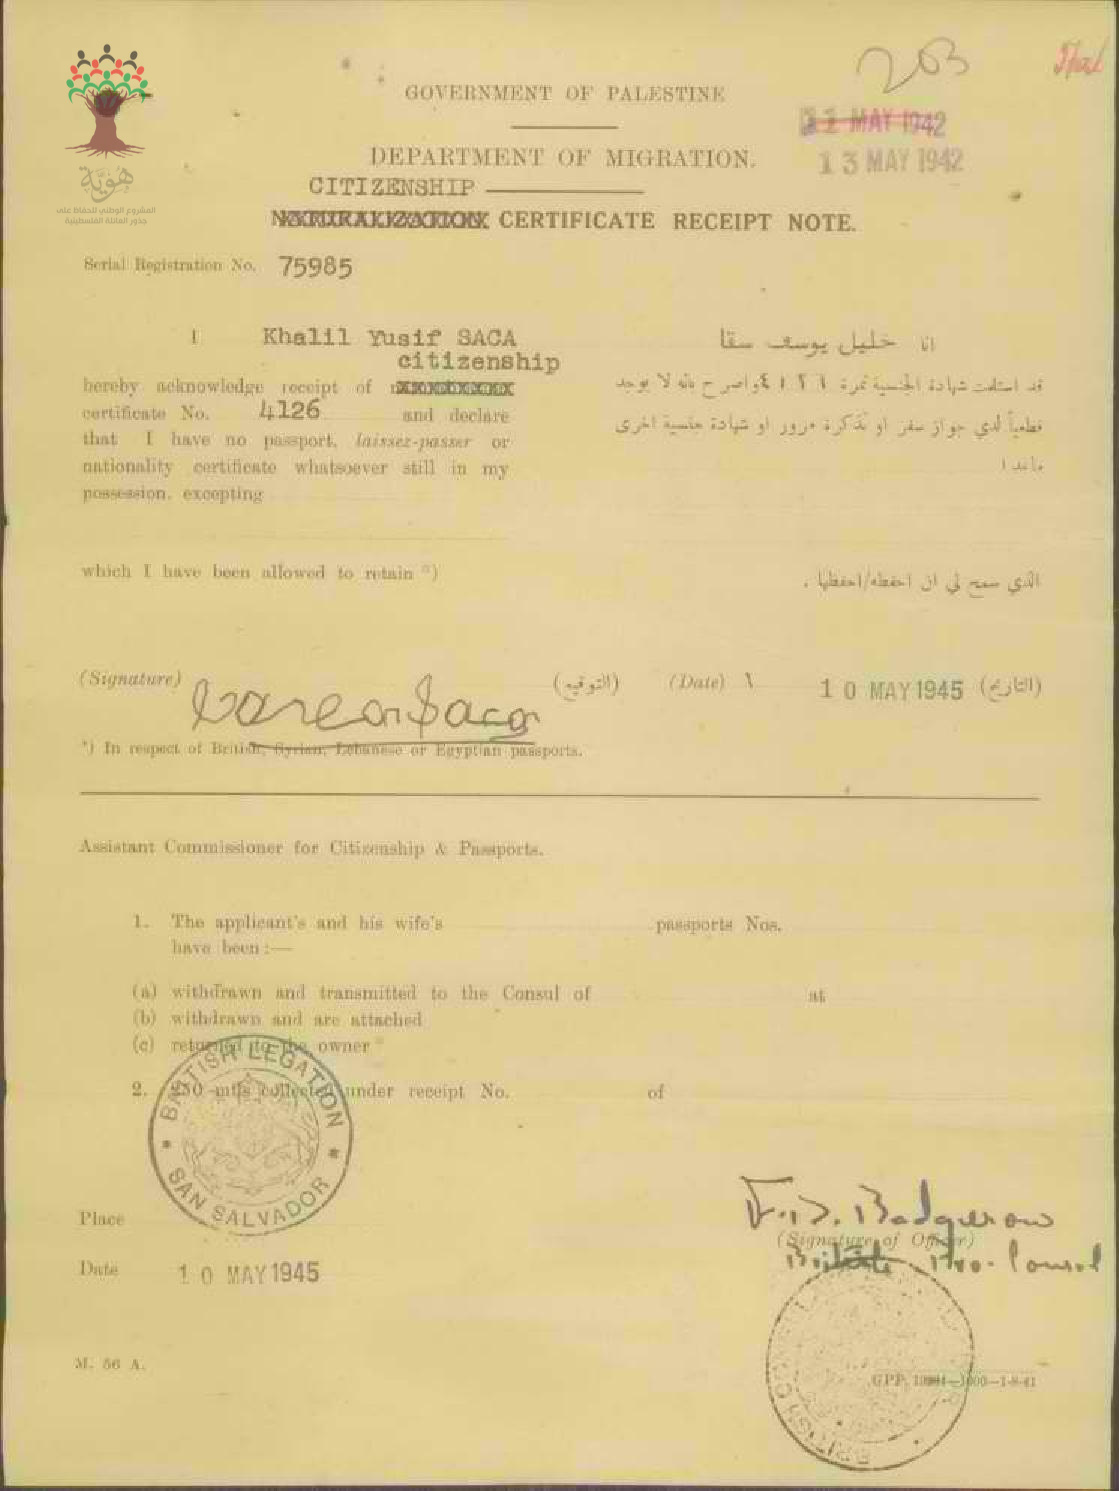 203
هوية
المشروع الوطني للحفاظ على
جذور العائلة الفلسطينية
GOVERNMENT OF PALESTINE
11 MAY 1942
13 MAY 1942
DEPARTMENT OF MIGRATION.
CITIZENSHIP
NATURALIZATION CERTIFICATE RECEIPT NOTE.
Serial Registration No. 75985
I Khalil Yusif SACA
citizenship
hereby acknowledge receipt of
certificate No. 4126 and declare
that I have no passport, laissez-passer or
nationality certificate whatsoever still in my
possession, excepting
انا خليل يوسف سقا
قد استلمت شهادة الجنسية نمرة ٤١٢٦ واصرح بانه لا يوجد
قطعياً لدي جواز سفر او تذكرة مرور او شهادة جنسية اخرى
ما عدا
which I have been allowed to retain *)
الذي سمح لي ان احفظه/احفظها .
(Signature) (التوقيع) (Date) 10 MAY 1945 (التاريخ)
*) In respect of British, Syrian, Lebanese or Egyptian passports.
Assistant Commissioner for Citizenship & Passports.
1. The applicant's and his wife's passports Nos.
have been :—
(a) withdrawn and transmitted to the Consul of at
(b) withdrawn and are attached
(c) returned to the owner
2. 250 mils collected under receipt No. of
BRITISH LEGATION
SAN SALVADOR
Place
F.D. Badgerow
(Signature of Officer)
British Pro-Consul
Date 10 MAY 1945
M. 56 A.
BRITISH